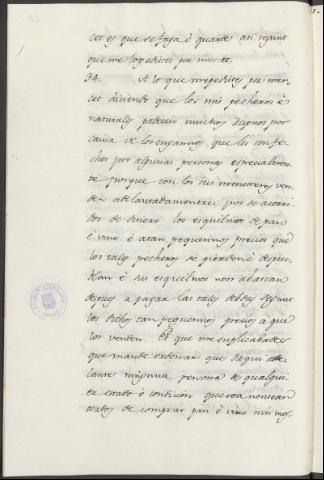 cet es que se faga é guarde asi segunt
que me lo pedistes por mercet.
34. A lo que me pedistes por mer-
cet diciendo que los mis pecheros é
naturales padecen muchos dapnos por
causa de los engannos que les son fe-
chos por algunas personas especialmen-
te porque con los sus menesteres ven-
den adelantadamente, por se acorrer
de dinero los esquilmos de pan
é vino é á tan pequennos precios que
los tales pecheros se pierden é despue-
blan é sus esquilmos non abastan
despues a pagar las tales debdas segunt
los dichos tan pequennos precios á que
los venden. Et que me suplicabades
que mande ordenar que daqui ade-
lante ninguna persona de qualqui-
er estado é condicion que sea non sean
osados de comprar pan é vino nin mos-